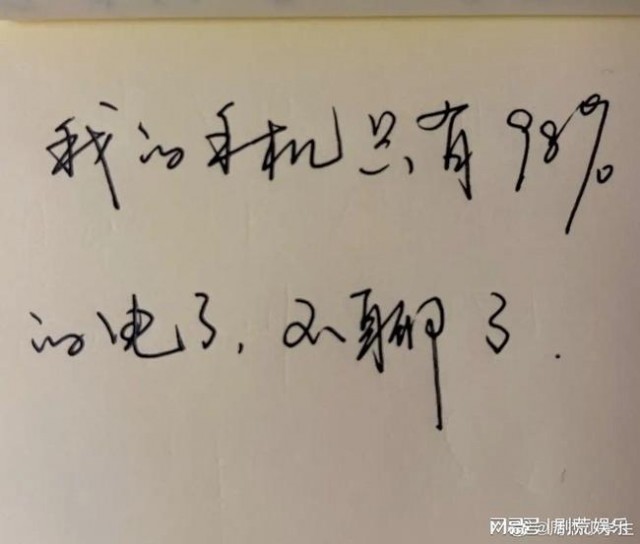 我的手机只有98%
的电了,不聊了.
网易号@剧荒娱乐